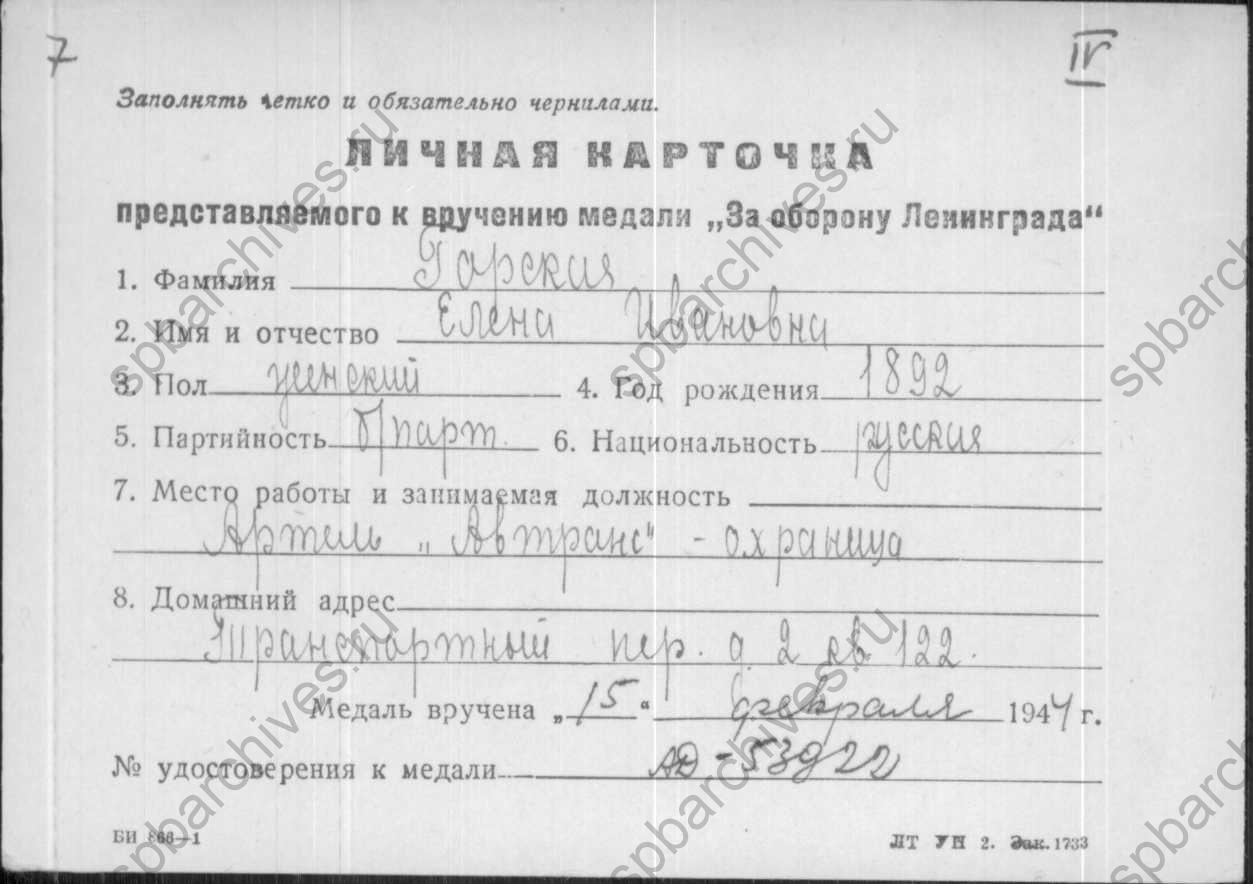 7
IV
Заполнять четко и обязательно чернилами.
ЛИЧНАЯ КАРТОЧКА
представляемого к вручению медали „За оборону Ленинграда“
1. Фамилия Горская
2. Имя и отчество Елена Ивановна
3. Пол женский 4. Год рождения 1892
5. Партийность б/парт. 6. Национальность русская
7. Место работы и занимаемая должность
Артель „Автранс" - охраница
8. Домашний адрес
Транспортный пер. д. 2 кв 122.
Медаль вручена „15“ февраля 1944 г.
№ удостоверения к медали АД-53922
БИ 866—1
ЛТ УН 2. Зак. 1733
spbarchives.ru
spbarchives.ru
spbarc
spbarchives.ru
spbarchives.ru
spbarc